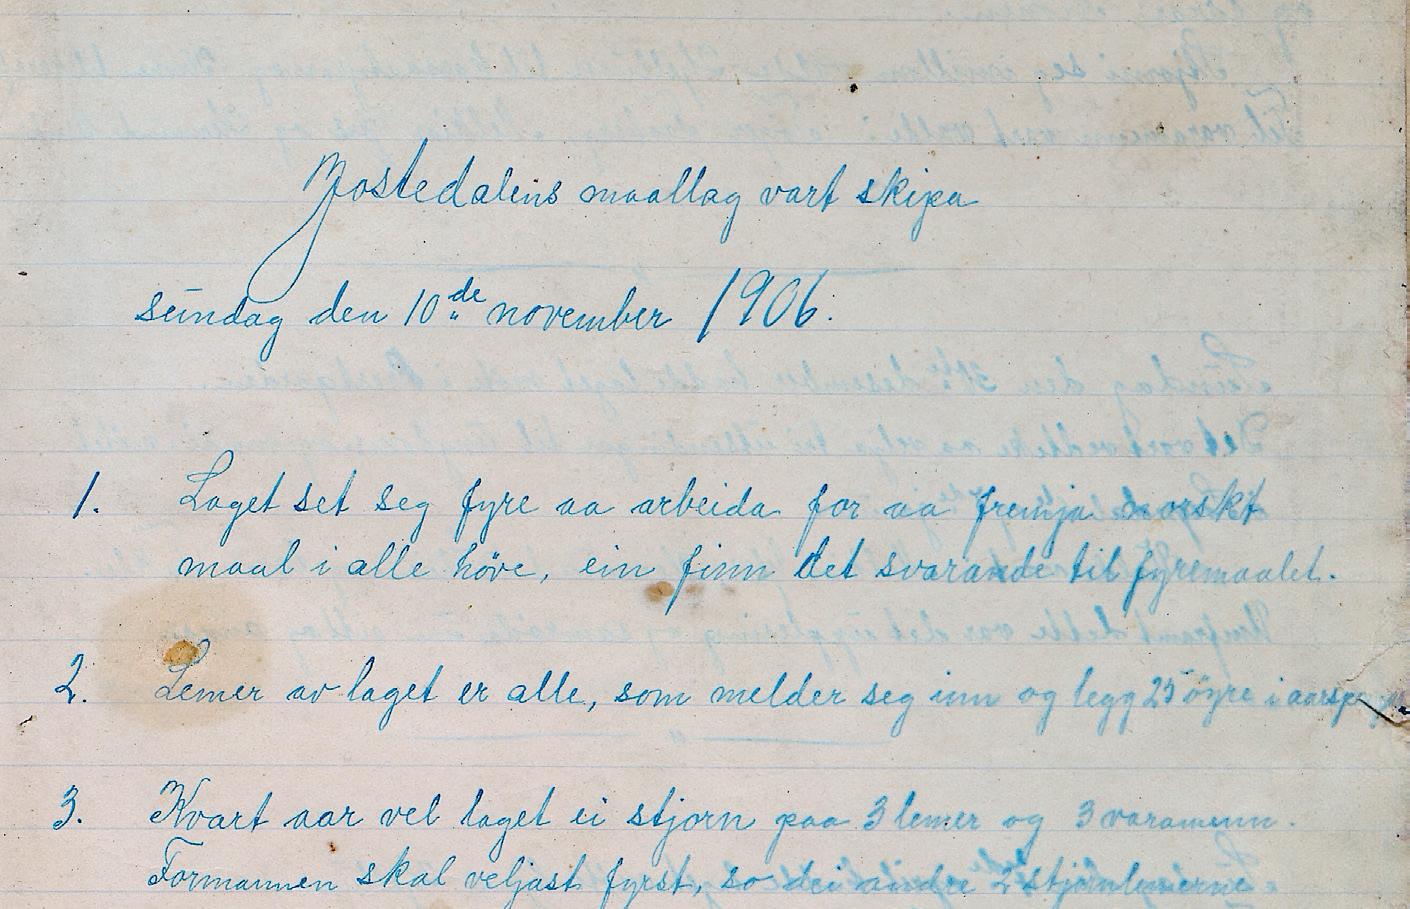 Jostedalens maallag vart skipa
sundag den 10de november 1906.
1. Laget set seg fyre aa arbeida for aa fremja norskt
maal i alle höve, ein finn det svarande til fyremaalet.
2. Lemer av laget er alle, som melder seg inn og legg 25 öyre i
3. Kvart aar vel laget ei stjorn paa 3 lemer og 3 varamenn.
Formannen skal veljast fyrst, so dei andre 2 stjornlemerne